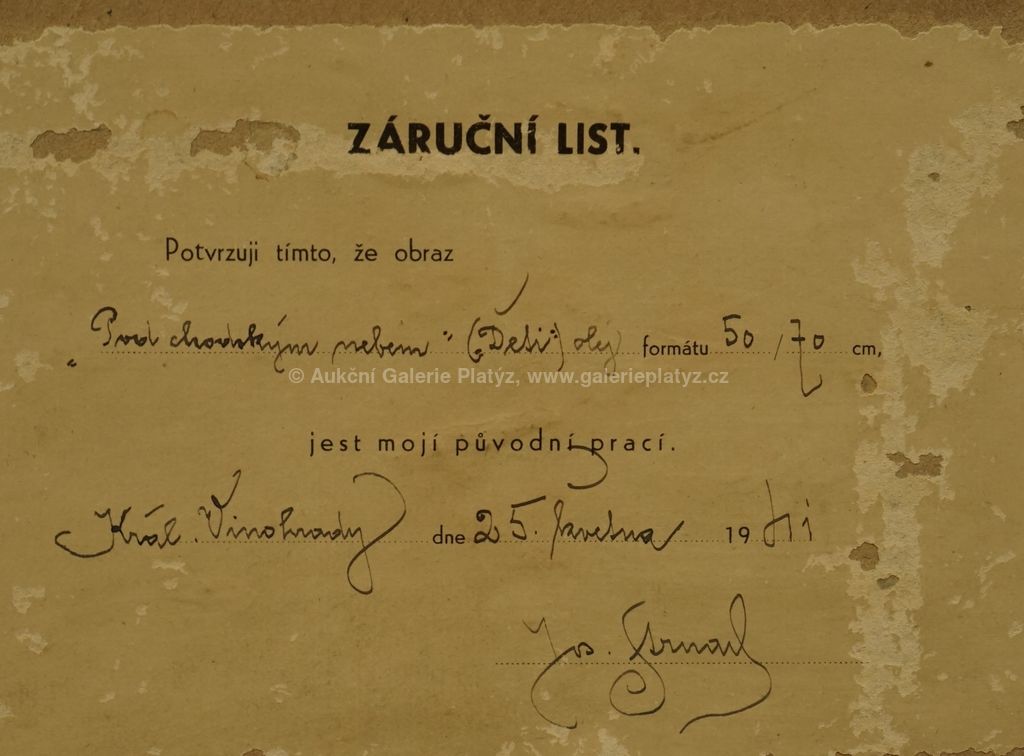 ZÁRUČNÍ LIST.
Potvrzuji tímto, že obraz
„Pod chodským nebem“ („Děti“) olej formátu 50/70 cm,
© Aukční Galerie Platýz, www.galerieplatyz.cz
jest mojí původní prací.
Král. Vinohrady dne 25. května 19
Jos. Strnad